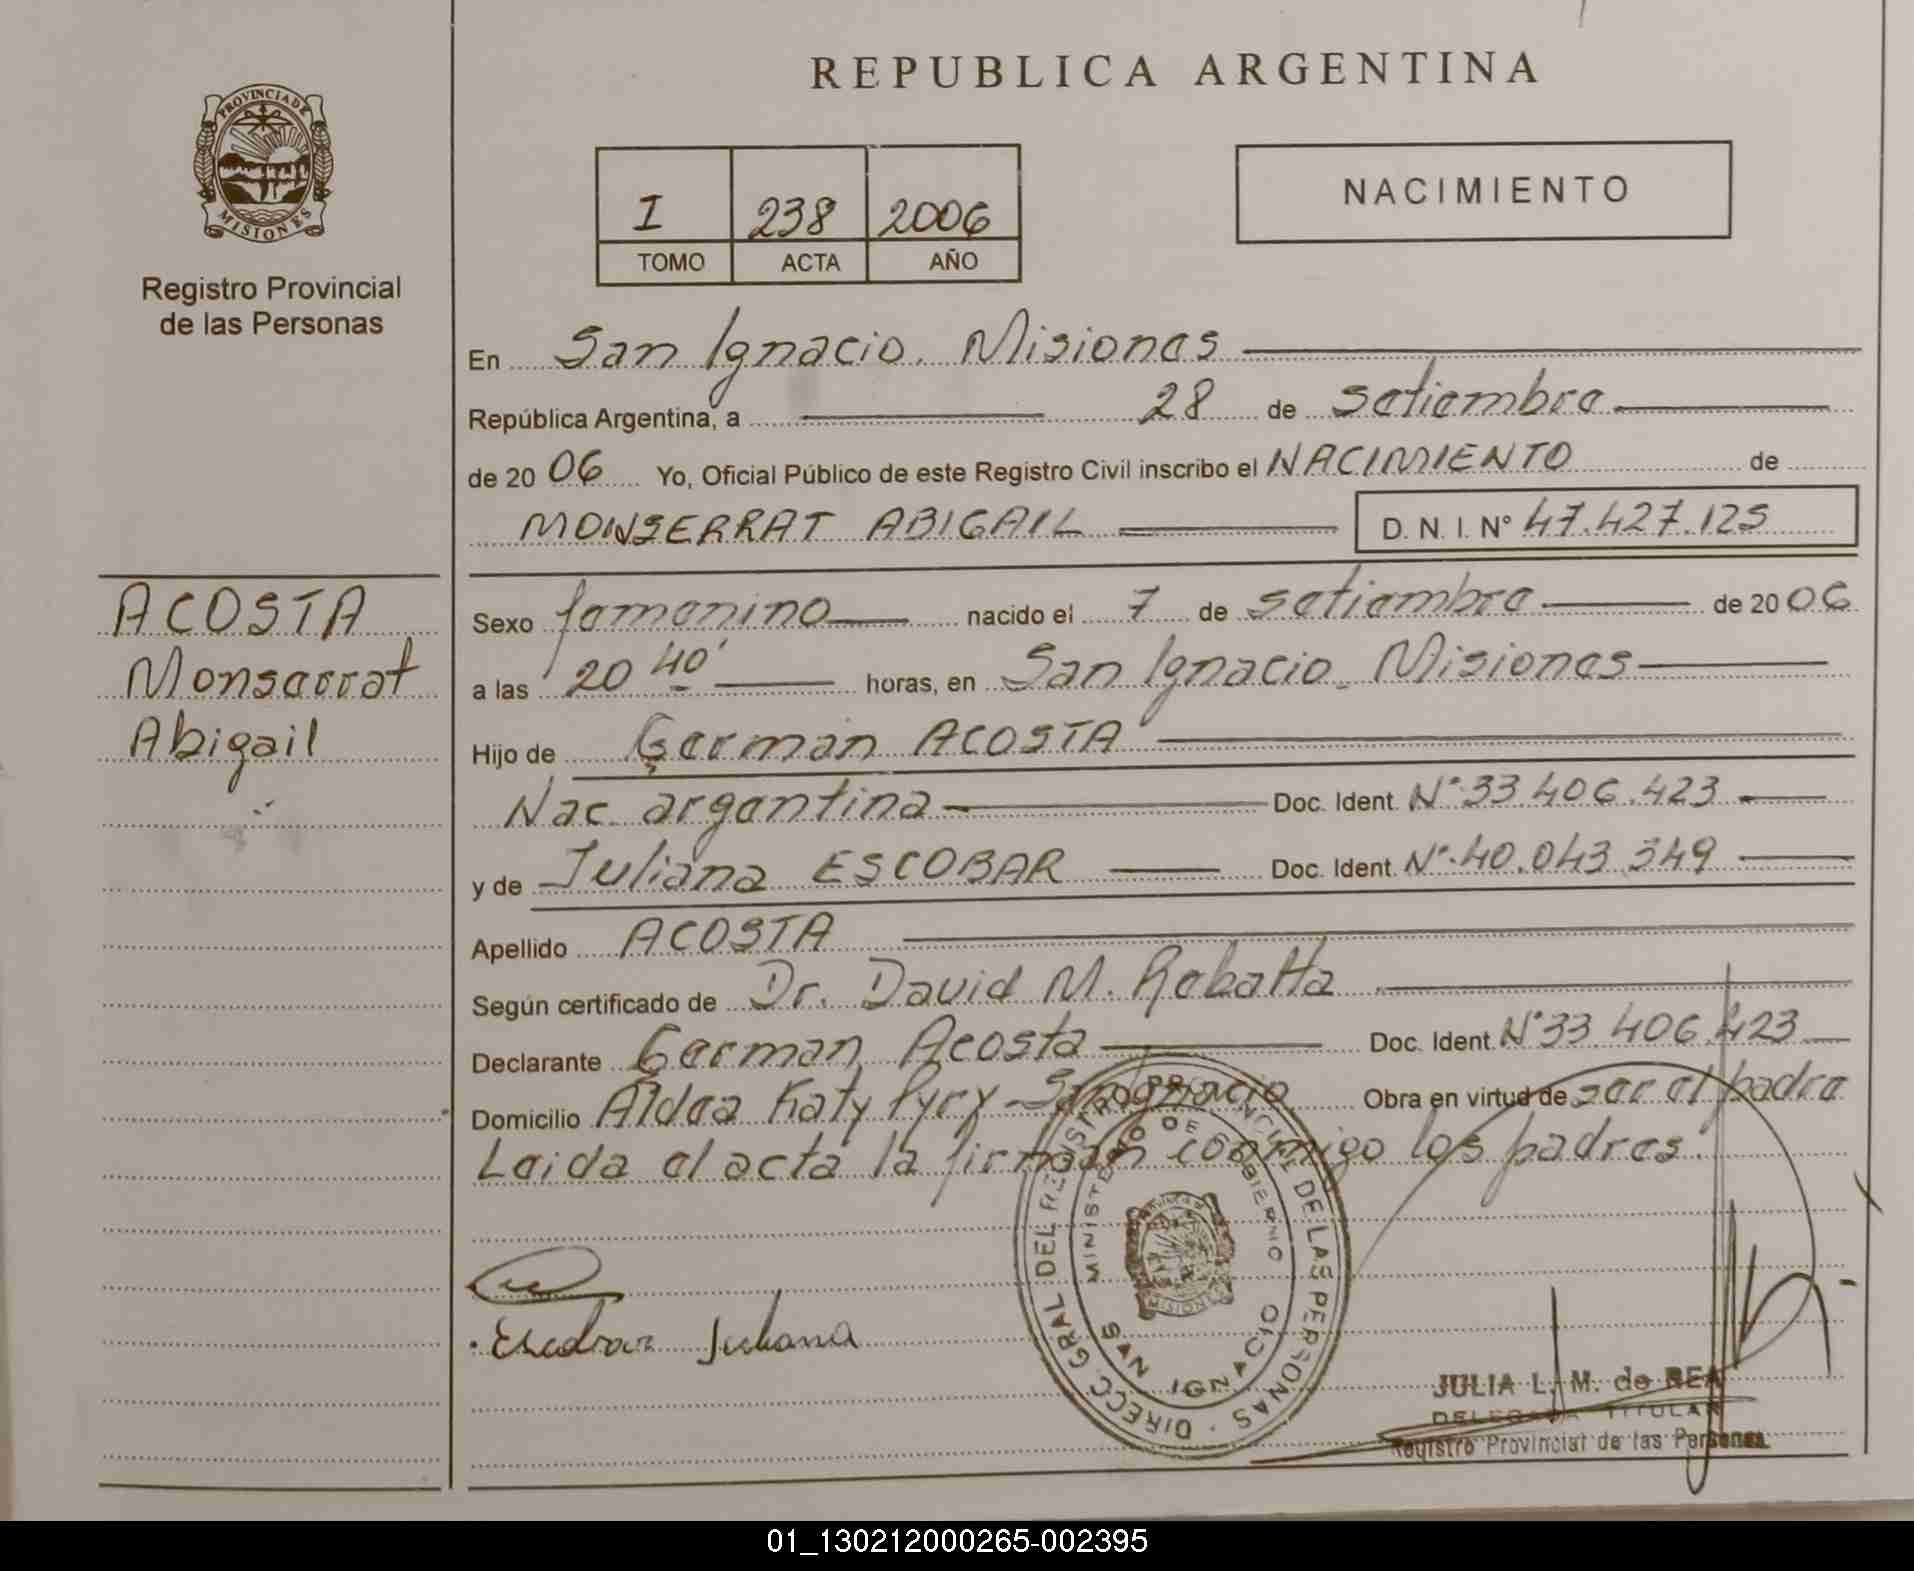 REPUBLICA ARGENTINA
PROVINCIA DE
MISIONES
Registro Provincial
de las Personas
I 238 2006
TOMO ACTA AÑO
NACIMIENTO
En San Ignacio. Misiones
República Argentina, a 28 de setiembre
de 20 06 Yo, Oficial Público de este Registro Civil inscribo el NACIMIENTO de
MONSERRAT ABIGAIL D. N. I. N° 47.427.125
ACOSTA
Monserrat
Abigail
Sexo femenino nacido el 7 de setiembre de 20 06
a las 20 40' horas, en San Ignacio. Misiones
Hijo de German ACOSTA
Nac. argentina Doc. Ident. N° 33.406.423
y de Juliana ESCOBAR Doc. Ident. N° 40.043.349
Apellido ACOSTA
Según certificado de Dr. David M. Rabatta
Declarante German Acosta Doc. Ident. N° 33.406.423
Domicilio Aldea Katy Pyry - San Ignacio Obra en virtud de ser el padre
Leida el acta la firman conmigo los padres.
Escobar Juliana
DIRECC. GRAL. DEL REGISTRO PROVINCIAL DE LAS PERSONAS
MINISTERIO DE GOBIERNO
MISIONES
SAN IGNACIO
JULIA L. M. de REA
DELEGADA TITULAR
Registro Provincial de las Personas
01_130212000265-002395